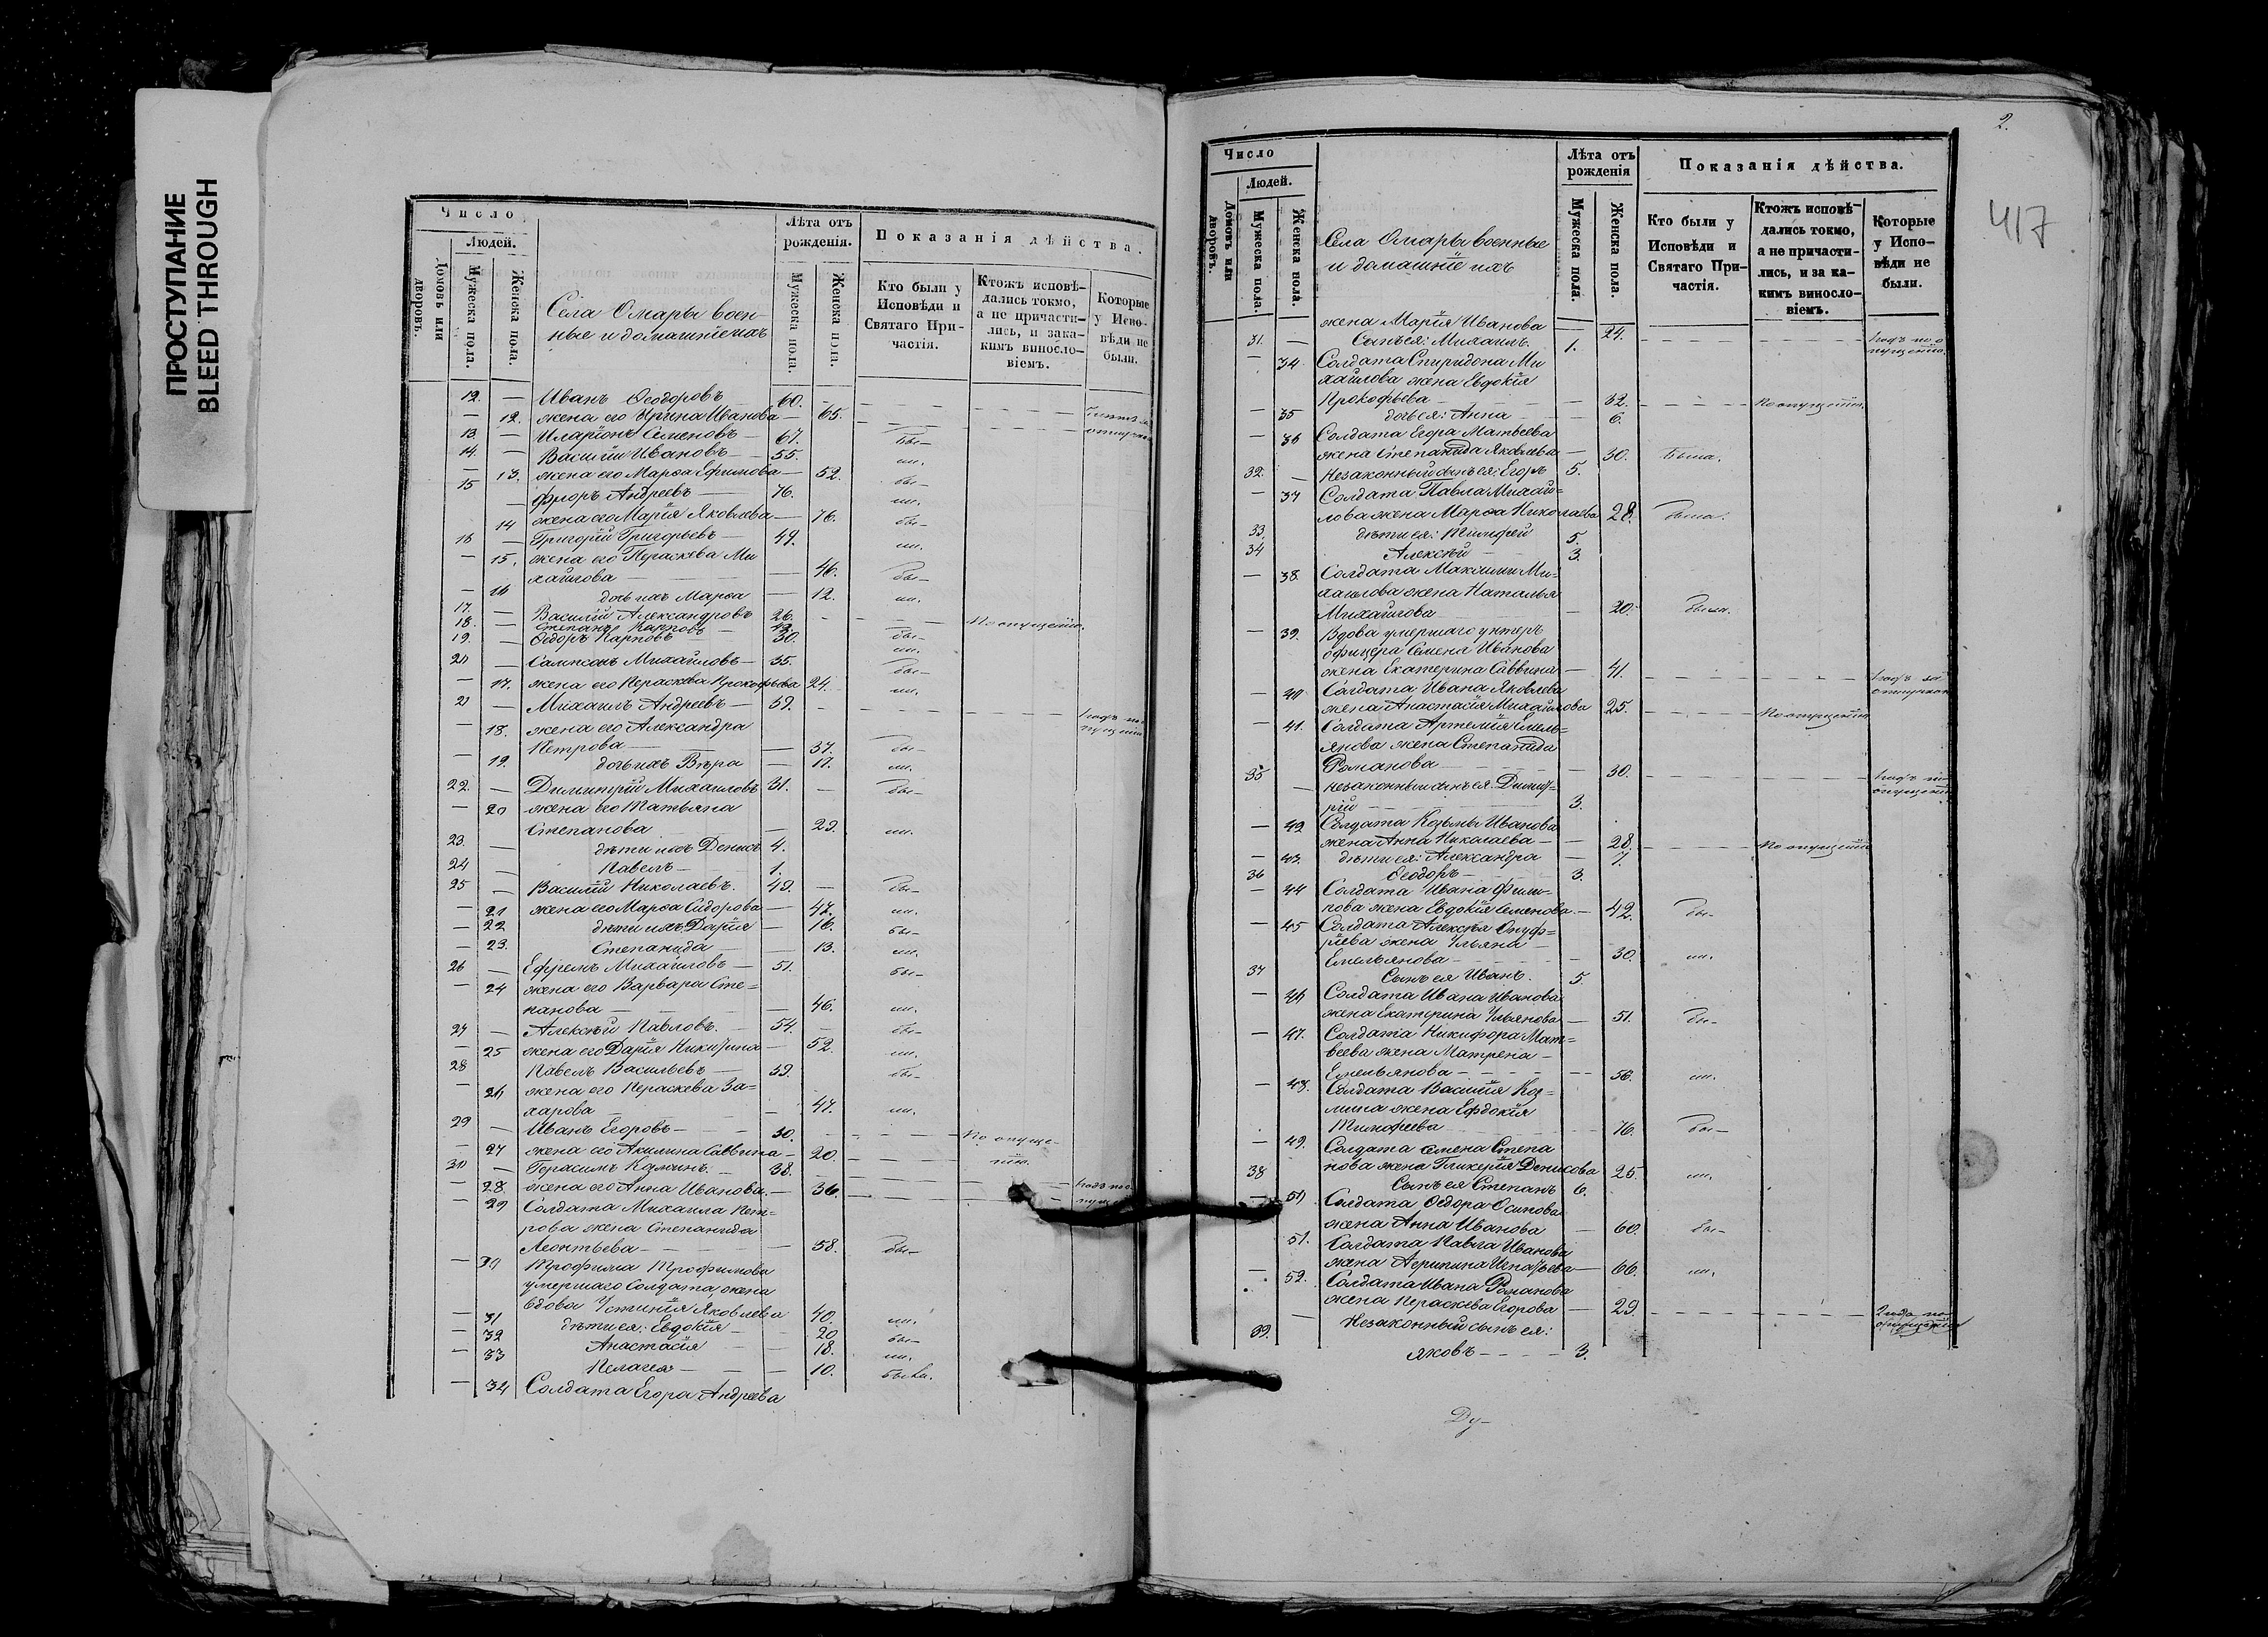 ПРОСТУПАНИЕ
BLEED THROUGH
Число
Людей.
Домовъ или дворовъ.
Мужеска пола.
Женска пола.
Села Омары воен-
ные и домашніе ихъ
Лѣта отъ рожденія.
Мужеска пола.
Женска пола.
Показанія дѣйства.
Кто были у Исповѣди и Святаго При-частія.
Ктожъ исповѣ-дались токмо, а не причасти-лись, и за ка-кимъ виносло-віемъ.
Которые у Испо-вѣди не были.
12. — Иванъ Ѳеодоровъ 60.
— 12. жена его Ирина Иванова — 65.
13. — Иларіонъ Семеновъ — 67. бы-
14. — Василій Ивановъ — 55. ли.
— 13. жена его Марѳа Ефимова — 52. бы-
15 — Флоръ Андреевъ — 76. ли.
14 жена его Марія Яковлева — 76. бы-
16 — Григорій Григорьевъ — 49. ли.
— 15. жена его Параскева Ми
хайлова — — 46. бы-
— 16 дочь ихъ Марѳа — 12. ли.
17. — Василій Александровъ 26. По опущенію.
18. — Степанъ Карповъ —
19. — Ѳедоръ Карповъ 30. бы- ли.
20 — Сампсонъ Михайловъ — 35. бы-
— 17. жена его Параскева Прокофьева 24. ли.
21 — Михаилъ Андреевъ — 59.
— 18. жена его Александра
Петрова — — 37. бы-
— 19. дочь ихъ Вѣра — 17. ли.
22. — Димитрій Михайловъ 31. — бы-
— 20 жена его Татьяна
Степанова — 29. ли.
23. — дѣти ихъ Денисъ 4.
24 — Павелъ — 1.
25 — Василій Николаевъ. 49. — бы-
— 21 жена его Марѳа Сидорова — 47. ли.
— 22 дѣти ихъ Дарія — 16. бы-
— 23. Степанида — — 13. ли.
26 — Ефремъ Михайловъ — 51. бы-
— 24 жена его Варвара Сте=
панова — — 46. ли.
27 — Алексѣй Павловъ. — 54. — бы-
— 25 жена его Дарія Никитина — 52. ли.
28 Павелъ Васильевъ — 59. бы-
— 26 жена его Параскева За=
харова — 47. ли.
29 — Иванъ Егоровъ — 30. По опуще-
— 27 жена его Акилина Саввина — 20. нію.
30 — Герасимъ Козминъ. — 38.
— 28. жена его Анна Иванова. — 36.
— 29 Солдата Михаила Пет=
рова жена Степанида
Леонтьева — — 58. бы-
— 30 Трофима Трофимова
умершаго солдата, жена
вдова Устинія Яковлева 40. ли.
— 31 дѣти ея: Евдокія — 20. бы-
— 32 Анастасія — 18. ли.
— 33 Пелагея — — 10. была.
— 34 Солдата Егора Андреева
2.
417
Число
Людей.
Домовъ или дворовъ.
Мужеска пола.
Женска пола.
Села Омары военные
и домашніе ихъ
Лѣта отъ рожденія
Мужеска пола.
Женска пола.
Показанія дѣйства.
Кто были у Исповѣди и Святаго При-частія.
Ктожъ исповѣ-дались токмо, а не причасти-лись, и за ка-кимъ виносло-віемъ.
Которые у Испо-вѣди не были.
жена Марія Иванова — 24.
31. — Сынъ ея: Михаилъ. 1.
— 34 Солдата Спиридона Ми
хайлова жена Евдокія
Прокофьева — — 32. По опущенію.
— 35 дочь ея: Анна — — 6.
— 36 Солдата Егора Матвеева
жена Степанида Яковлева — 30. Была.
32. — незаконный сынъ ея: Егоръ 5.
— 37 Солдата Павла Михай=
лова жена Марѳа Николаева 28. была.
33. дѣти ея: Тимофей 5.
34 Алексѣй — 3.
— 38. Солдата Максима Ми-
хайлова жена Наталья
Михайлова — — 20. была.
— 39. Вдова умершаго унтеръ
офицера Семена Иванова
жена Екатерина Саввина — 41.
— 40 Солдата Ивана Яковлева
жена Анастасія Михайлова 25. По опущенію
— 41. Солдата Артемія Емель=
янова жена Степанида
Романова — — 30.
35 — незаконный сынъ ея: Димит=
рій — 3.
— 42 Солдата Козьмы Иванова
жена Анна Николаева — — 28. По опущенію
— 43. дѣти ея: Александра — 7.
36 Ѳеодоръ — 3.
— 44 Солдата Ивана Фили=
пова жена Евдокія Семенова. — 42. бы-
— 45 Солдата Алексѣя Онуф=
ріева жена Ульяна —
Емельянова — — 30. ли.
37 Сынъ ея Иванъ. 5.
— 46 Солдата Ивана Иванова
жена Екатерина Ульянова — 51. бы-
— 47. Солдата Никифора Мат=
веева жена Матрена —
Емельянова — — 56. ли.
— 48. Солдата Василія Коз=
мина жена Евдокія
Тимофеева — 76. бы-
— 49. Солдата Семена Степа
нова жена Гликерія Денисова 25. ли.
38 Сынъ ея Степанъ 6.
— 50 Солдата Ѳедора Осипова
жена Анна Иванова — 60. бы-
51. Солдата Павла Иванова
жена Агрипина Игнатьева — 66. ли.
— 52. Солдата Ивана Романова
жена Параскева Егорова — 29. 2 года по опущенію
39. Незаконный сынъ ея:
Яковъ — 3.
Ду-